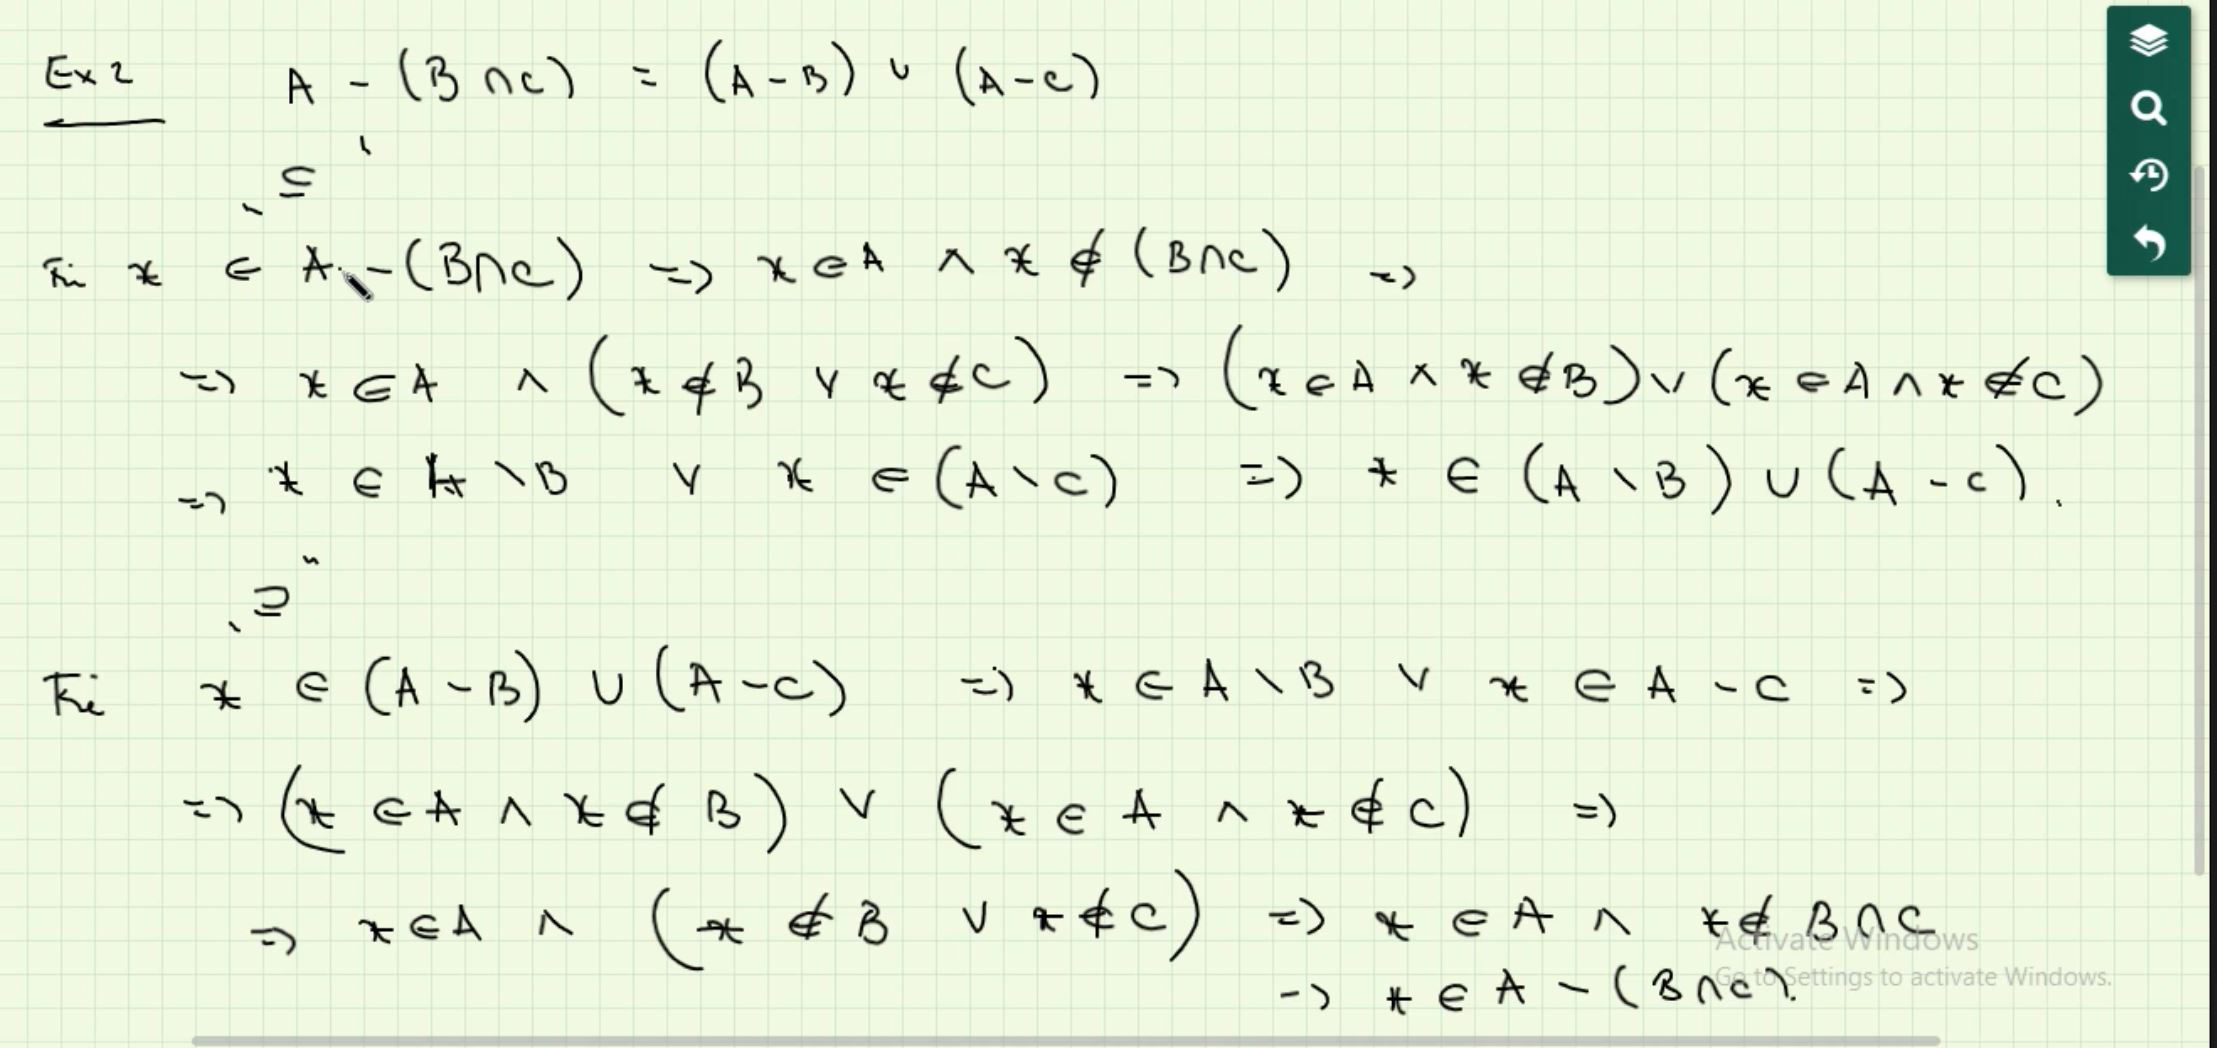 Ex 2 A - (B ∩ C) = (A - B) ∪ (A - C)
„ ⊆ "
x ∈ A - (B ∩ C) => x ∈ A ∧ x ∉ (B ∩ C) =>
=> x ∈ A ∧ (x ∉ B ∨ x ∉ C) => (x ∈ A ∧ x ∉ B) ∨ (x ∈ A ∧ x ∉ C)
=> x ∈ A \ B ∨ x ∈ (A \ C) => x ∈ (A \ B) ∪ (A - C).
„ ⊇ "
x ∈ (A - B) ∪ (A - C) => x ∈ A \ B ∨ x ∈ A - C =>
=> (x ∈ A ∧ x ∉ B) ∨ (x ∈ A ∧ x ∉ C) =>
=> x ∈ A ∧ (x ∉ B ∨ x ∉ C) => x ∈ A ∧ x ∉ B ∩ C
-> x ∈ A - (B ∩ C).
Activate Windows
Go to Settings to activate Windows.